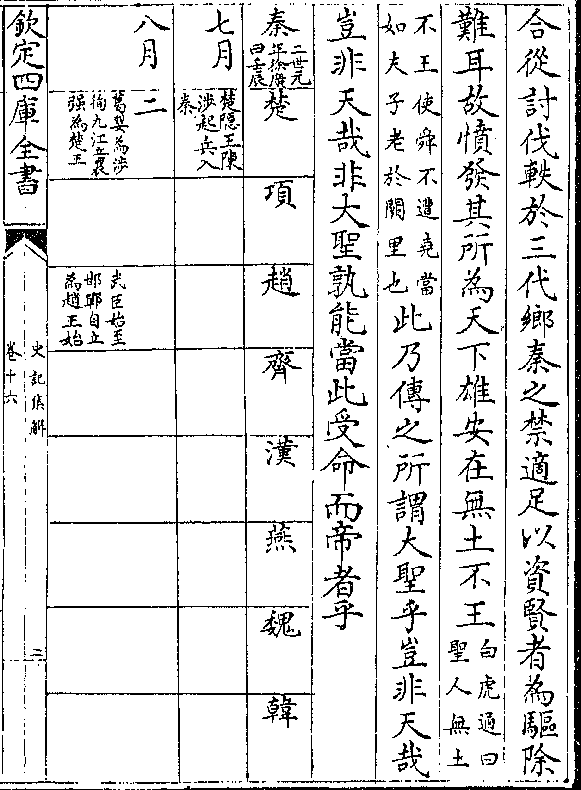 合從討伐軼於三代鄉秦之禁適足以資賢者為驅除
難耳故憤發其所為天下雄安在無土不王白虎通曰
聖人無土
不王使舜不遭堯當
如夫子老於闕里也此乃傳之所謂大聖乎豈非天哉
豈非天哉非大聖孰能當此受命而帝者乎
秦二世元
年徐廣
曰壬辰
楚
項
趙
齊
漢
燕
魏
韓
七月
楚隱王陳
涉起兵入
秦
八月
二
葛嬰為涉
徇九江立襄
彊為楚王
武臣始至
邯鄲自立
為趙王始
欽定四庫全書
史記集解
卷十六
二